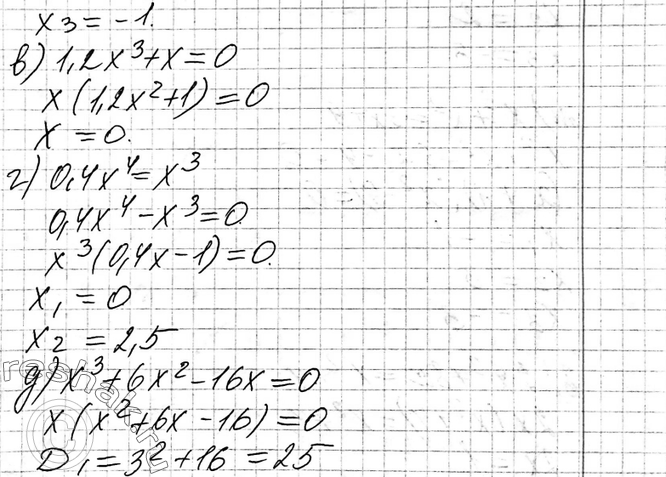 x₃ = -1.
в) 1,2x³+x=0
x(1,2x²+1)=0
x =0.
г) 0,4x⁴=x³
0,4x⁴-x³=0.
x³(0,4x-1)=0.
x₁ =0
x₂ =2,5
д) x³+6x²-16x=0
x(x²+6x-16)=0
D₁=3²+16=25
reshak.ru